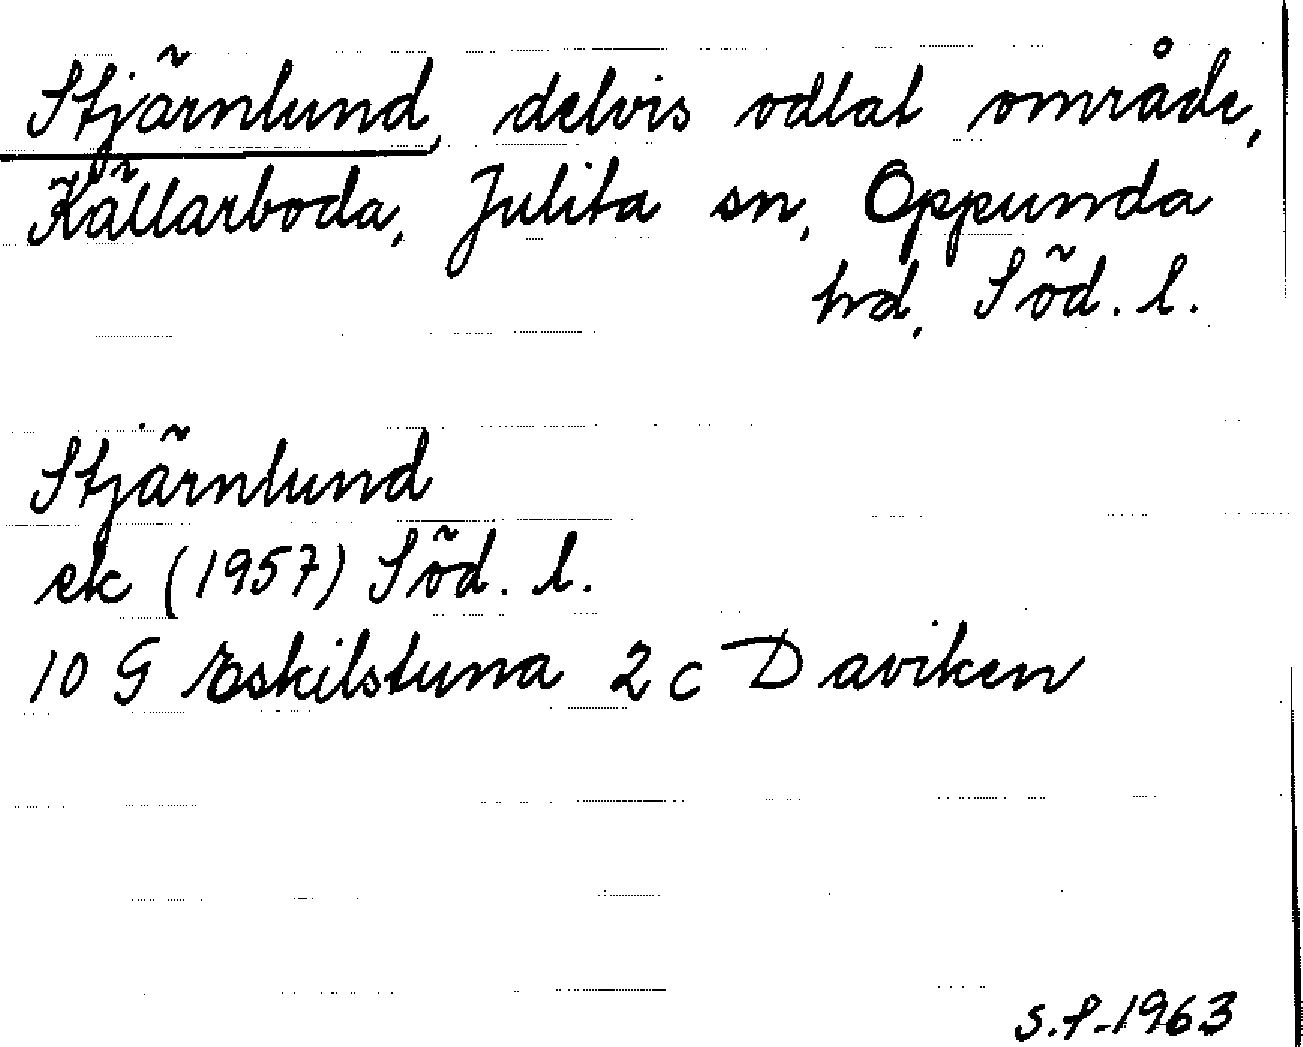 Stjärnlund, delvis odlat område,
Källarboda, Julita sn, Oppunda
hd, Söd. l.
Stjärnlund
ek (1957) Söd. l.
10 G Eskilstuna 2 c Daviken
S.P-1963